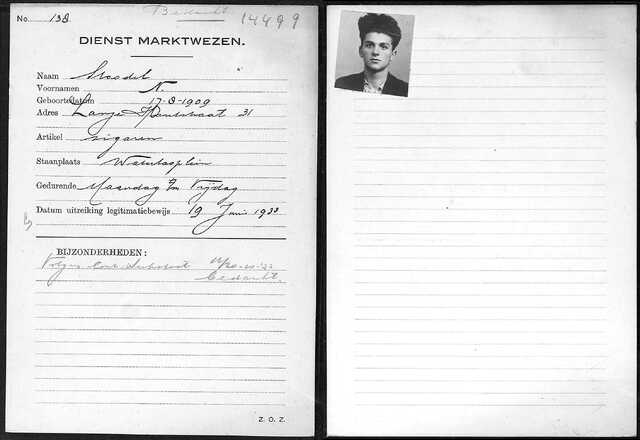 No. 138
14499
DIENST MARKTWEZEN.
Naam
Voornamen N.
Geboortedatum 17-8-1909
Adres Lange 31
Artikel sigaren
Staanplaats Waterlooplein
Gedurende Maandag t/m Vrijdag
Datum uitreiking legitimatiebewijs 19 Juni 1933
BIJZONDERHEDEN:
Volgens
Z. O. Z.